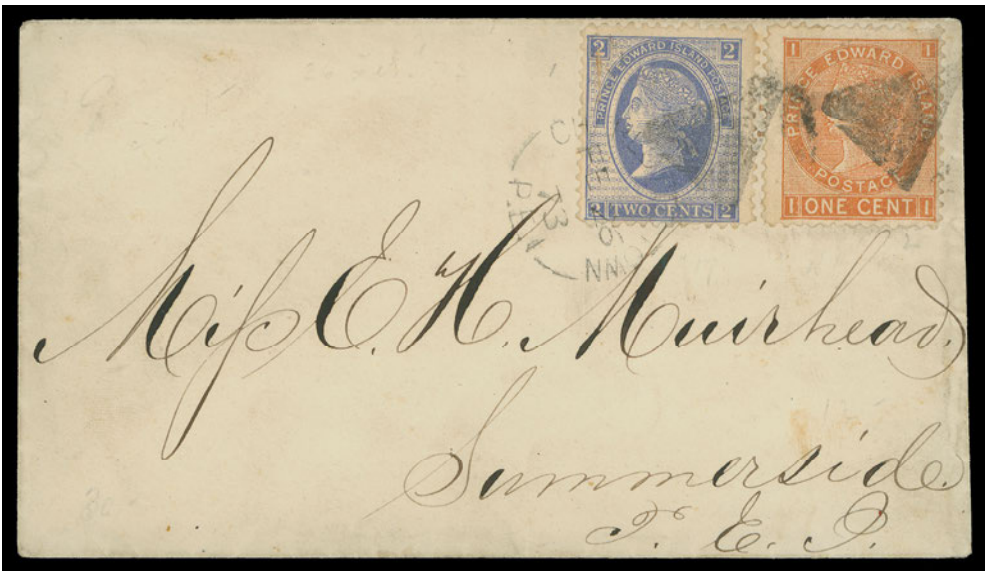 2 2
PRINCE EDWARD ISLAND POSTAGE
2 TWO CENTS 2
1 1
PRINCE EDWARD ISLAND
POSTAGE
1 ONE CENT 1
73
P.E.I
Miss E. H. Muirhead.
Summerside.
P. E. I.